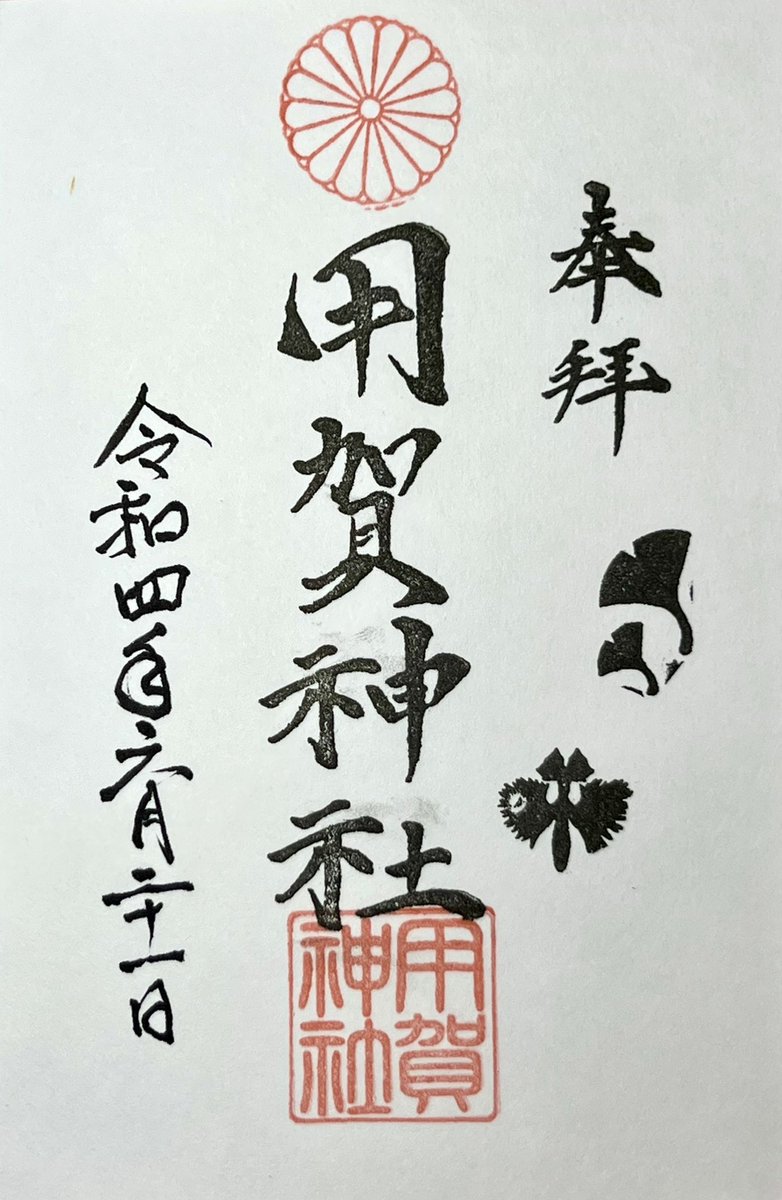 奉拝
用賀神社
用賀神社
令和四年六月二十一日